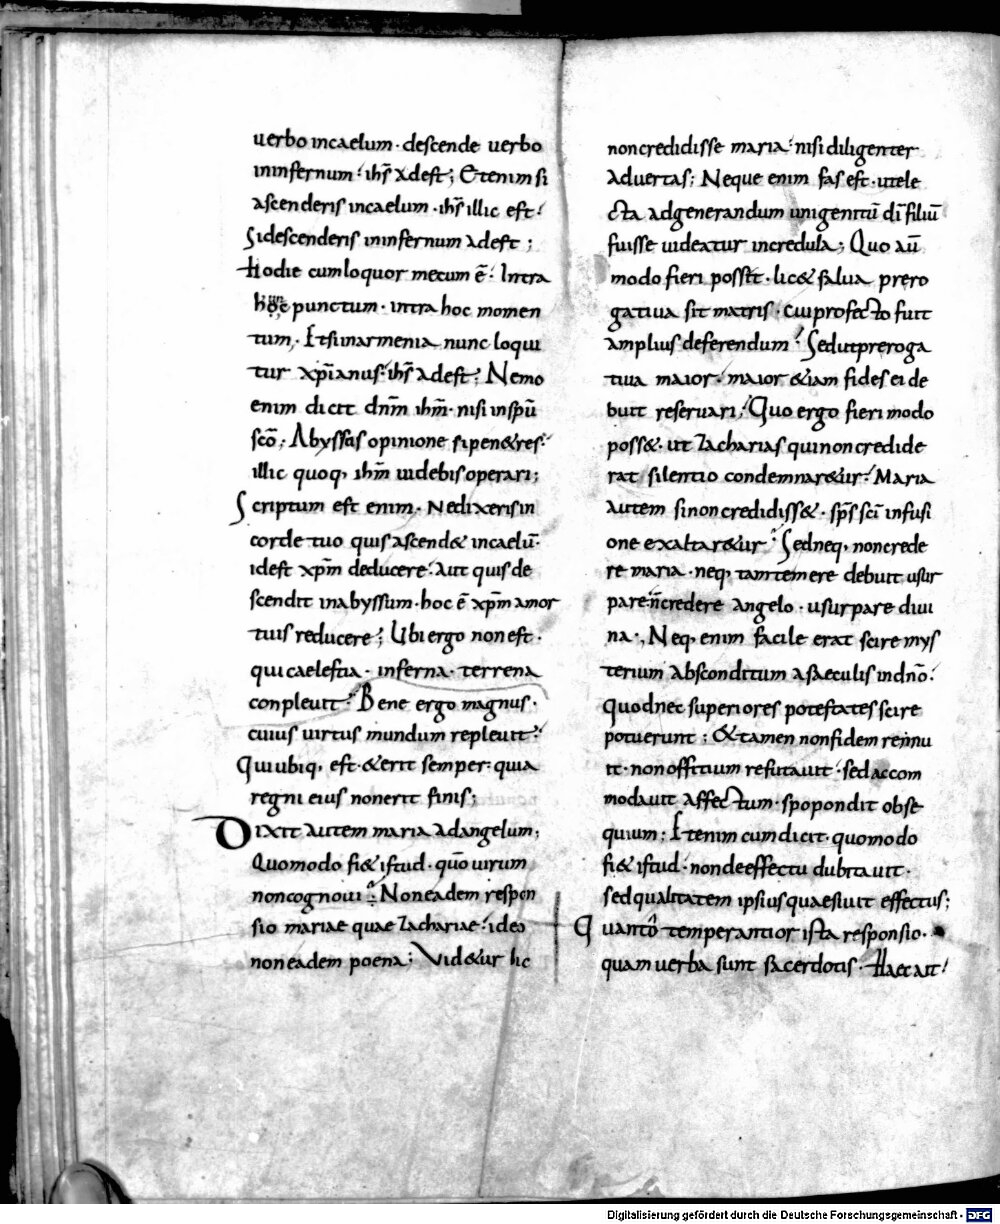 uerbo incaelum · descende uerbo
ininfernum · ihs̄ adest; Etenim si
ascenderis incaelum · ihs̄ illic est ·
Si descenderis ininfernum adest ;
Hodie cum loquor mecum ē · Intra
hoc punctum · intra hoc momen
tum, · Et si in armenia nunc loqui
tur xp̄ianus · ihs̄ adest; Nemo
enim dicit dn̄m ihm̄ · nisi in sp̄u
sc̄o; Abyssas opinione si pen&res ·
illic quoq, ihm̄ uidebis operari;
Scriptum est enim · Ne dixeris in
corde tuo quis ascend& incaelū ·
id est xp̄m deducere · aut quis de
scendit in abyssum · hoc ē xp̄m a mor
tuis reducere; Ubi ergo non est ·
qui caelestia · inferna · terrena
conpleuit · Bene ergo magnus ·
cuius uirtus mundum repleuit ·
Qui ubiq, est · & erit semper · quia
regni eius non erit finis;
Dixit autem maria ad angelum;
Quomodo fi& istud · quō uirum
non cognoui · Non eadem respon
sio mariae quae zachariae · ideo
non eadem poena; Vid&ur hic
non credidisse maria · nisi diligenter
aduertas; Neque enim fas est · ut ele
cta ad generandum unigenitū dī filiū
fuisse uideatur incredula; Quo aū
modo fieri posset · lic& salua prero
gatiua sit matris · cui profecto fuit
amplius deferendum · Sed ut preroga
tiua maior · maior &iam fides ei de
buit reseruari · Quo ergo fieri modo
poss& · ut zacharias qui non credide
rat silentio condemnar&ur · Maria
autem si non credidiss& · sp̄s sc̄i infusi
one exaltar&ur · Sed neq, non crede
re maria · neq, tam temere debuit usur
pare · credere angelo · usurpare diui
na ·, Neq, enim facile erat scire mys
terium absconditum a saeculis in dn̄o ·
quod nec superiores potestates scire
potuerunt ; & tamen non fidem rennu
it · non offitium refutauit · sed accom
modauit affectum · spopondit obse
quium; Etenim cum dicit · quomodo
fi& istud · non de effectu dubitauit ·
sed qualitatem ipsius quaesiuit effectus;
Quantō temperantior ista responsio ·
quam uerba sunt sacerdotis · Haec ait ·
Digitalisierung gefördert durch die Deutsche Forschungsgemeinschaft - DFG